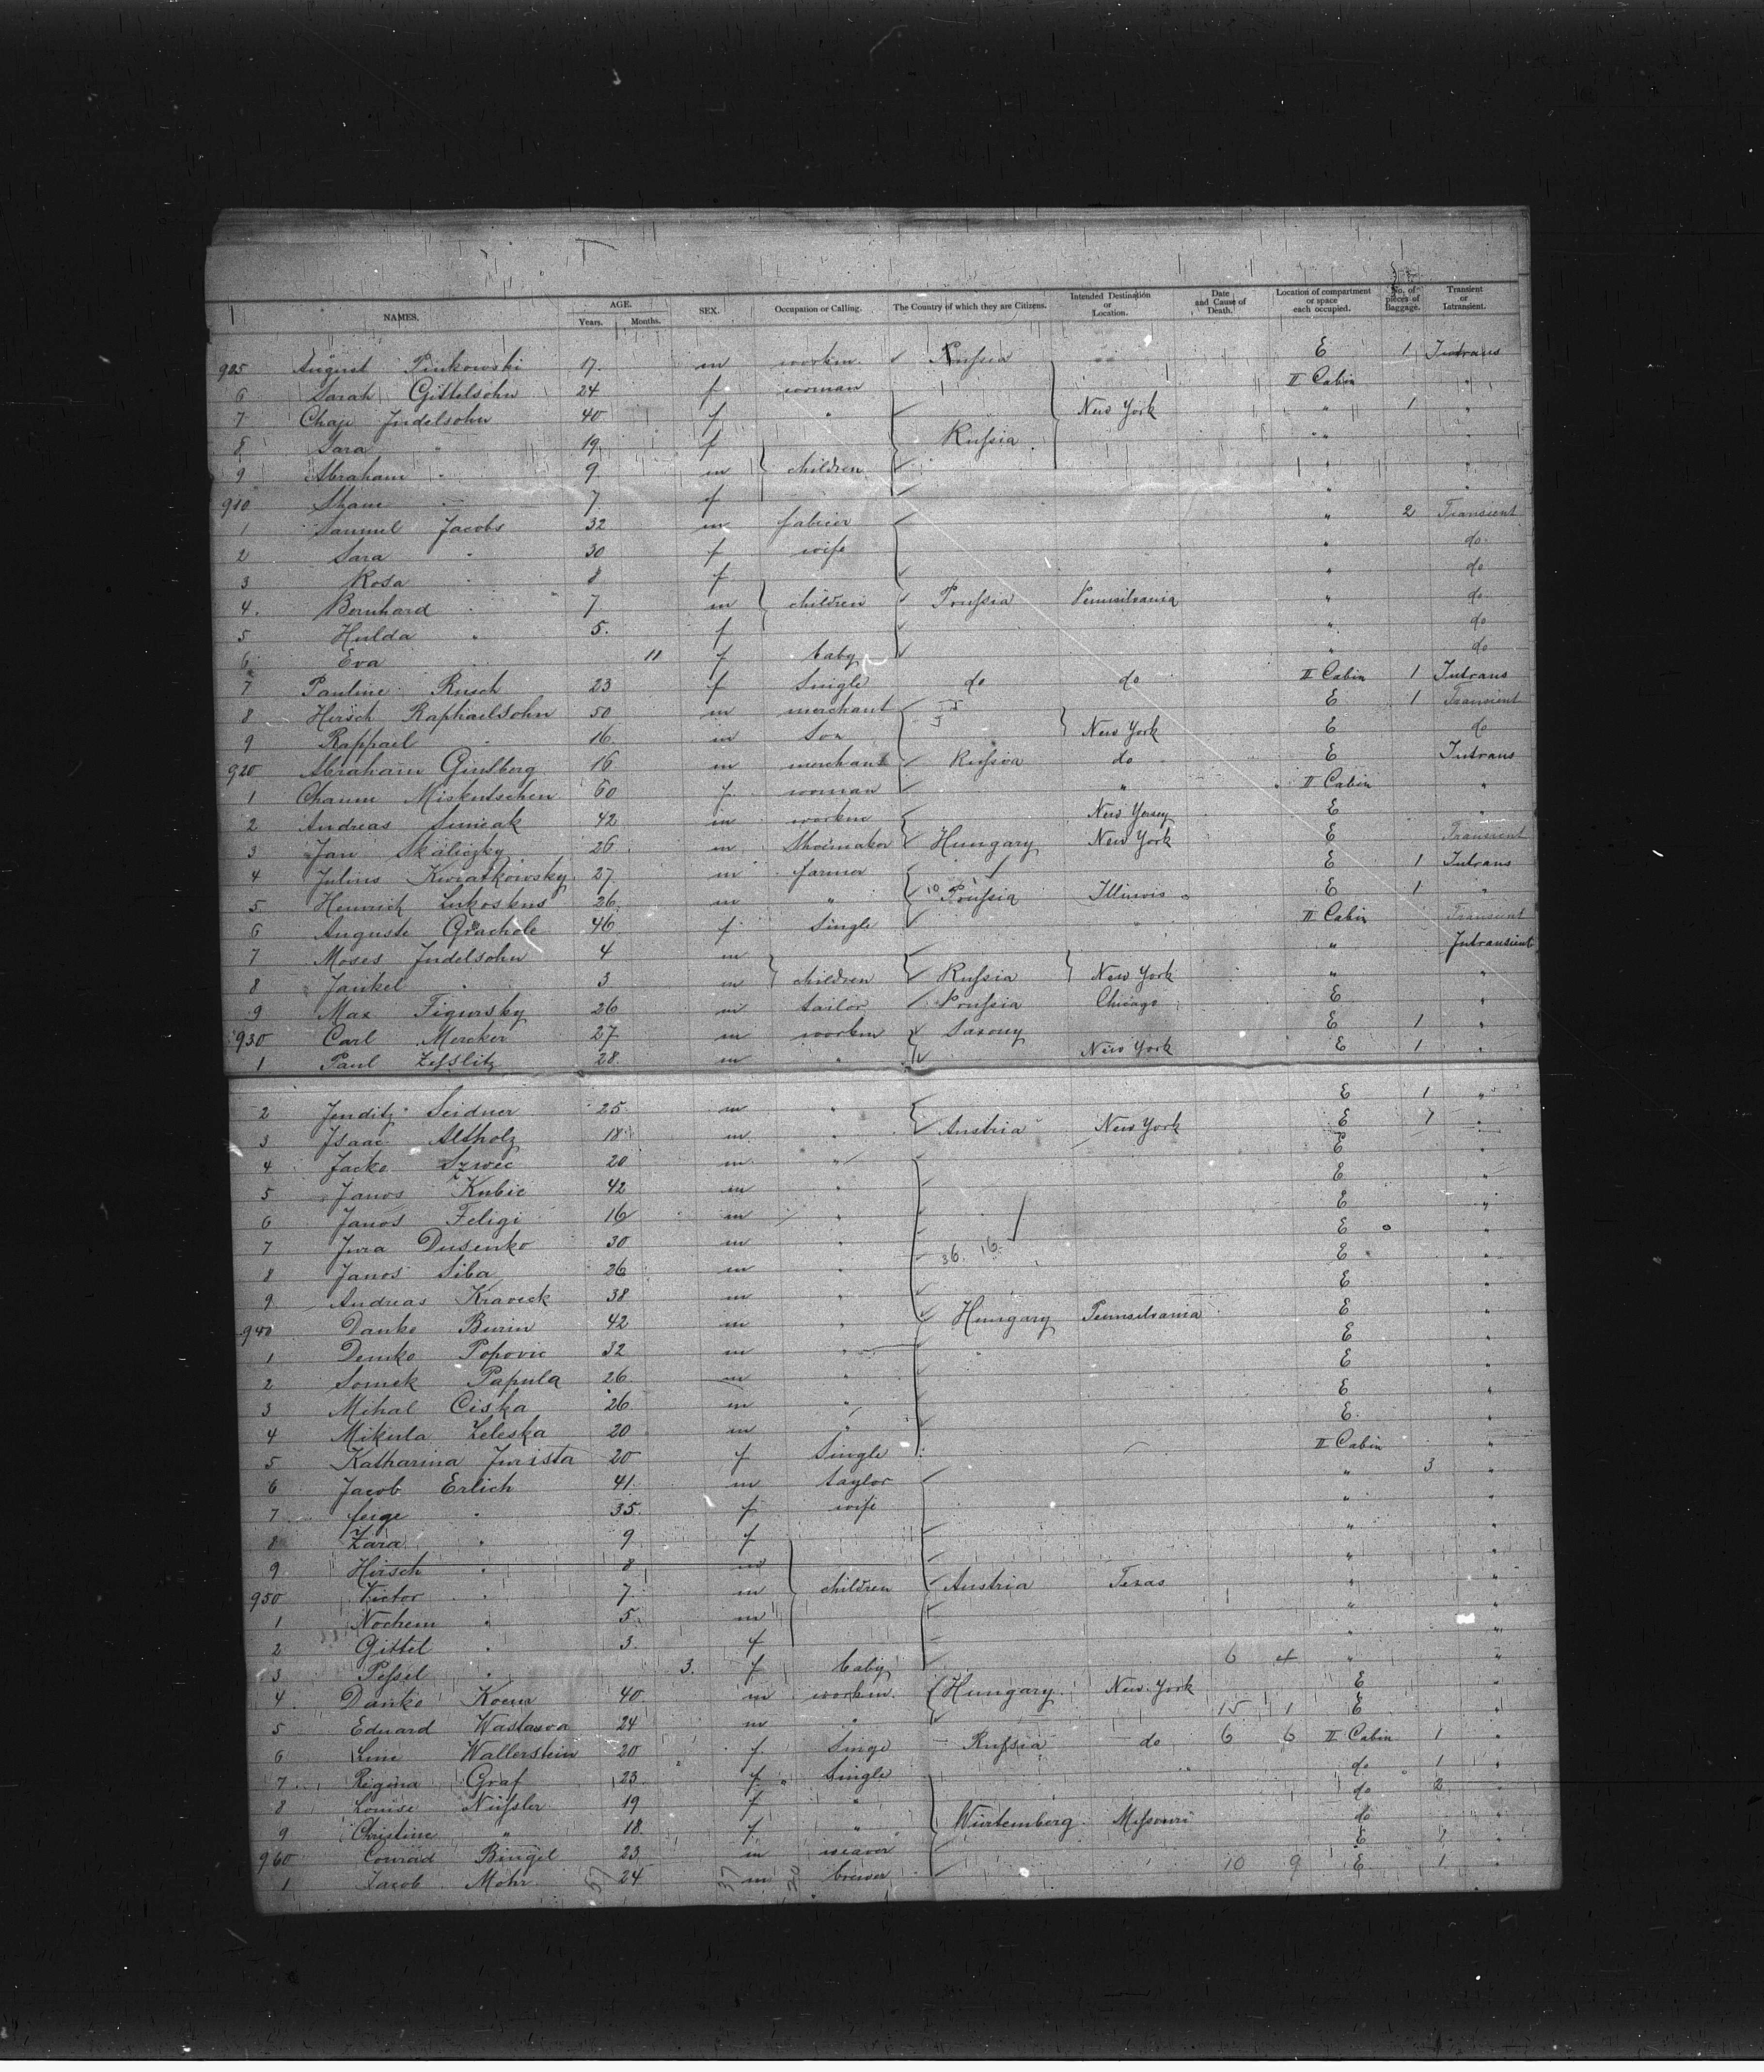 NAMES. AGE. Years. Months. SEX. Occupation or Calling. The Country of which they are Citizens. Intended Destination or Location. Date and Cause of Death. Location of compartment or space each occupied. No. of pieces of Baggage. Transient or Intransient.
905 August Pinkowski 17 m workm Russia E 1 Intrans
6 Sarah Gittelsohn 24 f woman II Cabin "
7 Chaje Judelsohn 40 f " New York " 1 "
8 Sara " 19 f Russia " "
9 Abraham " 9 m children " "
910 7 f " "
1 Samuel Jacobs 32 m " 2 Transient
2 Sara " 30 f wife " do
3 Rosa " 8 f " do
4 Bernhard " 7 m children Prussia Pennsilvania " do
5 Hulda " 5 f " do
6 Eva 11 f baby " do
7 Pauline Rusch 23 f Single do do II Cabin 1 Intrans
8 Hirsch Raphaelsohn 50 m merchant E 1 Transient
9 Raphael " 16 m Son New York E do
920 Abraham Ginsberg 16 m merchant Russia do E Intrans
1 Chaim Miskutschen 60 f woman " II Cabin "
2 Andreas Simeak 42 m workm New Yersey E "
3 Jan Skaliczky 26 m Shoemaker Hungary New York E Transient
4 Julius Kwiatkowsky 27 m farmer E 1 Intrans
5 Heinrich Lukoskus 26 m " 10 Prussia Illinois E 1 "
6 Auguste 46 f Single II Cabin Transient
7 Moses Judelsohn 4 m " Intransient
8 Jankel " 3 m children Russia New York " "
9 Max Figursky 26 m tailor Prussia Chicago E "
930 Carl Mercker 27 m workm Saxony E 1 "
1 Paul Zesslitz 28 m " New York E 1 "
2 Jenditz Seidner 25 m " E 1 "
3 Isaac Altholz 18 m " Austria New York E 1 "
4 Jacko Szwec 20 m " E "
5 Janos Kubic 42 m " E "
6 Janos Feligi 16 m " E "
7 Jura Dusenko 30 m " 36 16 E "
8 Janos Siba 26 m " E "
9 Andreas Kraveck 38 m " E "
940 Danko Burin 42 m " Hungary Pennsilvania E "
1 Demko Popovic 32 m " E "
2 Somek Papula 26 m " E "
3 Mihal Ciska 26 m " E "
4 Mikula Zeleska 20 m " E "
5 Katharina Jurista 20 f Single II Cabin "
6 Jacob Erlich 41 m taylor " 3 "
7 feige " 35 f wife " "
8 Zara " 9 f " "
9 Hirsch " 8 m " "
950 Victor " 7 m children Austria Texas " "
1 Nochem " 5 m "
2 Gittel " 3 f " "
3 Pessel " 3 f baby 6 4 " "
4 Danko Kocur 40 m workm Hungary New York E "
5 Eduard Wastawa 24 m " 15 1 E "
6 Wallerstein 20 f Singe Russia do 6 6 II Cabin 1 "
7 Regina Graf 23 f Single do 1 "
8 Louise Nüssler 19 f " do 2 "
9 Christine " 18 f " Würtemberg Missouri do "
960 Conrad Bingel 23 m weaver E "
1 Jacob Mohr 24 m brewer 10 9 E 1 "